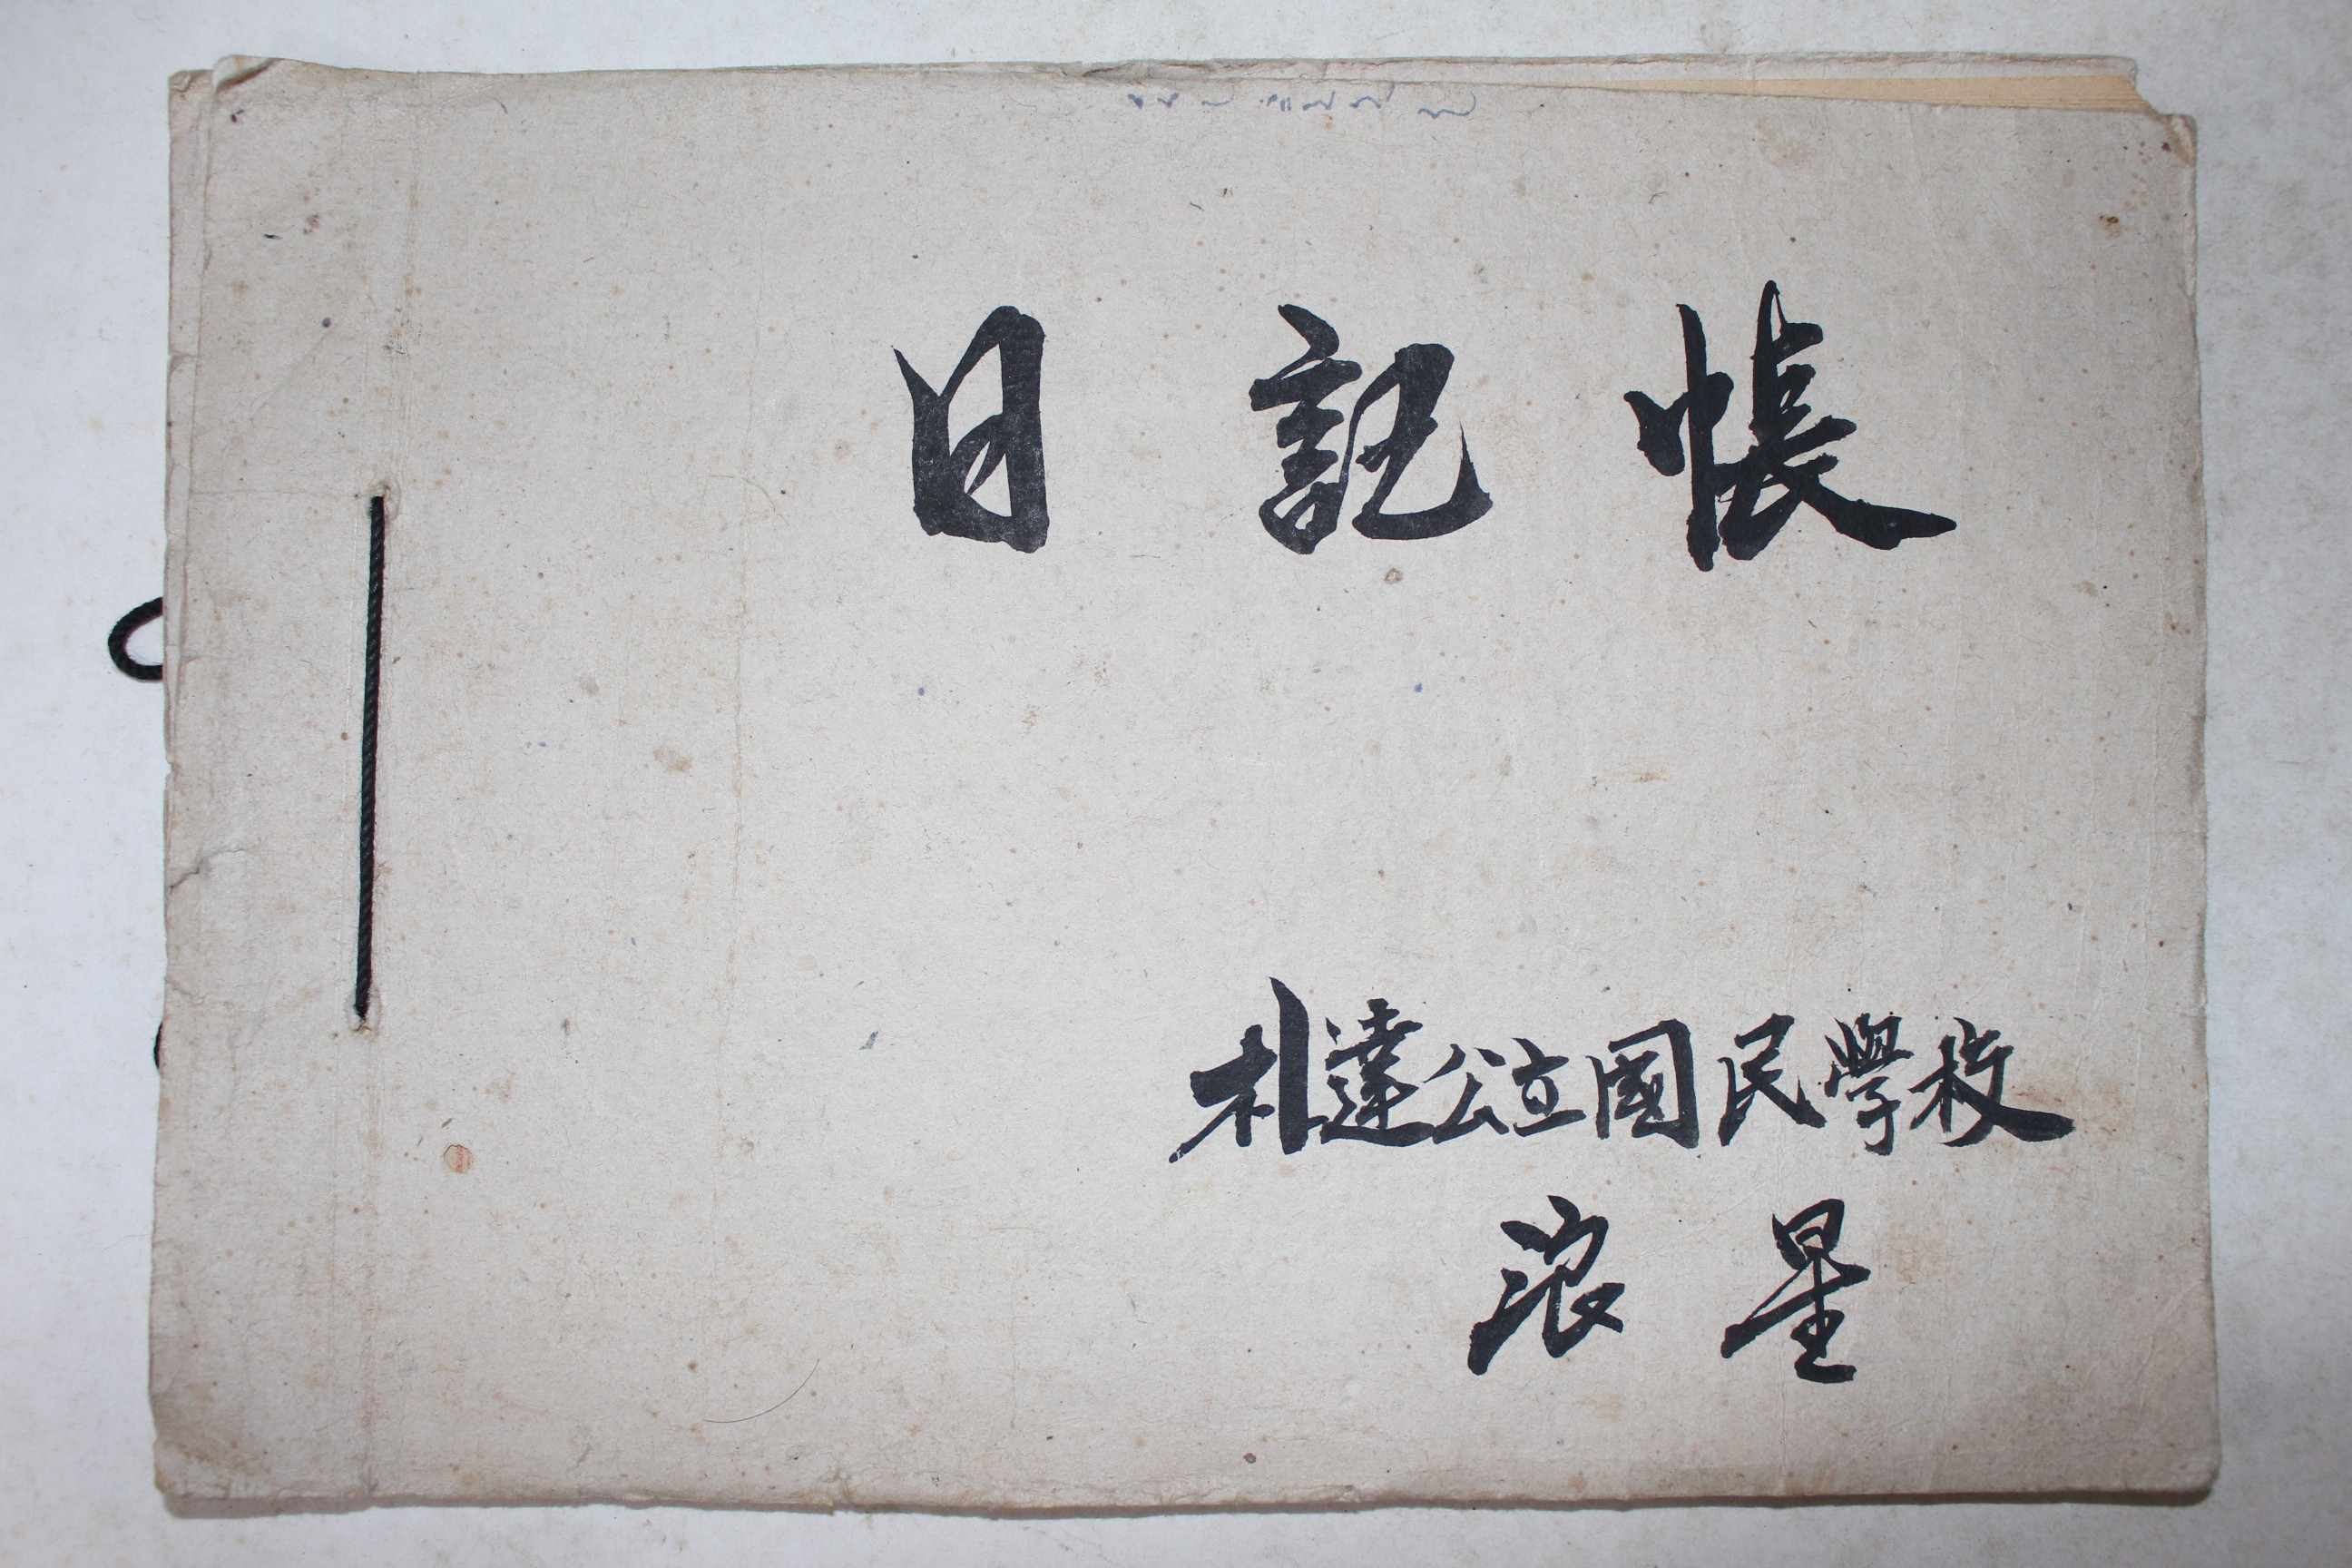 日記帳
朴達公立國民學校
浪星